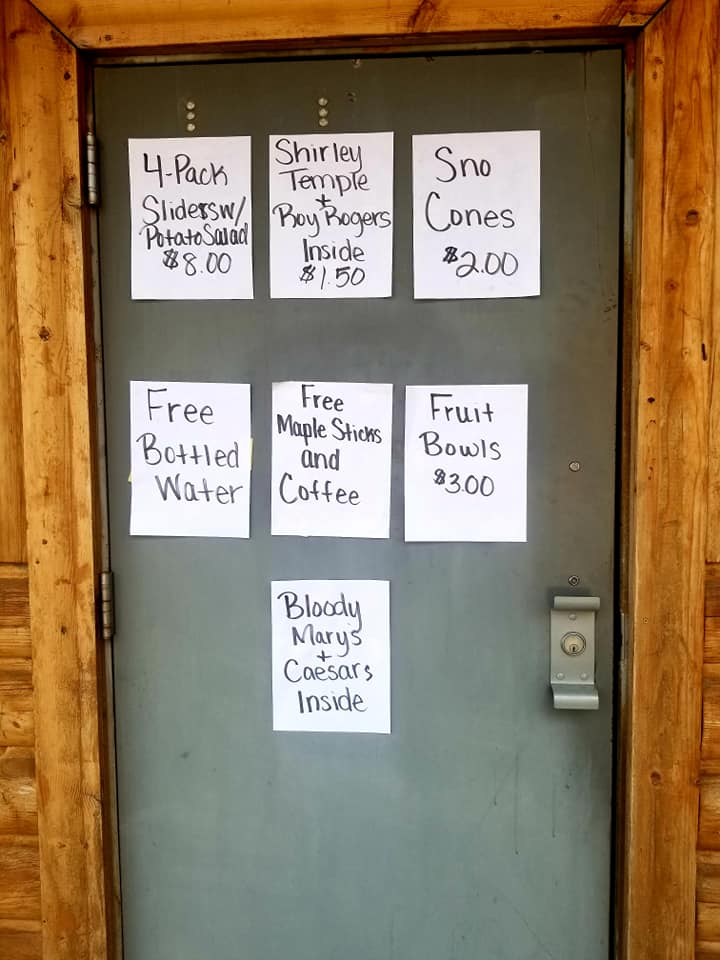 4-Pack
Sliders w/
Potato Salad
$8.00
Shirley
Temple
+
Roy Rogers
Inside
$1.50
Sno
Cones
$2.00
Free
Bottled
Water
Free
Maple Sticks
and
Coffee
Fruit
Bowls
$3.00
Bloody
Mary's
+
Caesars
Inside